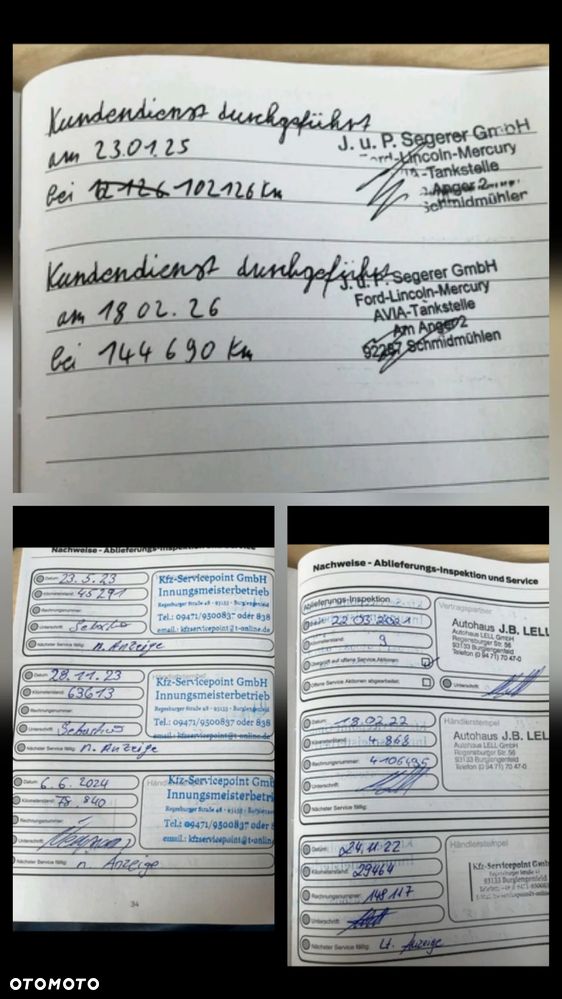 Kundendienst durchgeführt
am 23.01.25
bei 12 126 102126 Km
J. u. P. Segerer GmbH
Ford-Lincoln-Mercury
-Tankstelle
Anger 2
Schmidmühlen
Kundendienst durchgeführt
am 18.02.26
bei 144 690 Km
J. u. P. Segerer GmbH
Ford-Lincoln-Mercury
AVIA-Tankstelle
Am Anger 2
92287 Schmidmühlen
Nachweise - Ablieferungs-Inspektion und Service
Datum: 23.5.23
Kilometerstand: 45291
Rechnungsnummer:
Unterschrift:
Nächster Service fällig: n. Anzeige
Kfz-Servicepoint GmbH
Innungsmeisterbetrieb
Regensburger Straße 48 - 93133 - Burglengenfeld
Tel.: 09471/9500837 oder 838
email.: kfzservicepoint@t-online.de
Datum: 28.11.23
Kilometerstand: 63613
Rechnungsnummer:
Unterschrift:
Nächster Service fällig: n. Anzeige
Kfz-Servicepoint GmbH
Innungsmeisterbetrieb
Regensburger Straße 48 - 93133 - Burglengenfeld
Tel.: 09471/9500837 oder 838
email.: kfzservicepoint@t-online.de
Datum: 6.6.2024
Kilometerstand: 78.840
Rechnungsnummer:
Unterschrift:
Nächster Service fällig: n. Anzeige
Kfz-Servicepoint GmbH
Innungsmeisterbetrieb
Regensburger Straße 48 - 93133 - Burglengenfeld
Tel.: 09471/9500837 oder 8
email.: kfzservicepoint@t-online
34
Nachweise - Ablieferungs-Inspektion und Service
Ablieferungs-Inspektion
Vertragspartner
22.03.2021
Kilometerstand: 9
Übergriff auf offene Service Aktionen
Offene Service Aktionen abgearbeitet
Unterschrift:
Autohaus J.B. LELL
Autohaus LELL GmbH
Regensburger Str. 56
93133 Burglengenfeld
Telefon (0 94 71) 70 47-0
Datum: 18.02.22
Kilometerstand: 4.868
Rechnungsnummer: 4106495
Unterschrift:
Nächster Service fällig:
Händlerstempel
Autohaus J.B. LELL
Autohaus LELL GmbH
Regensburger Str. 56
93133 Burglengenfeld
Telefon (0 94 71) 70 47-0
Datum: 24.11.22
Kilometerstand: 29464
Rechnungsnummer: 148117
Unterschrift:
Nächster Service fällig: n. Anzeige
Händlerstempel
Kfz-Servicepoint GmbH
93133 Burglengenfeld
OTOMOTO